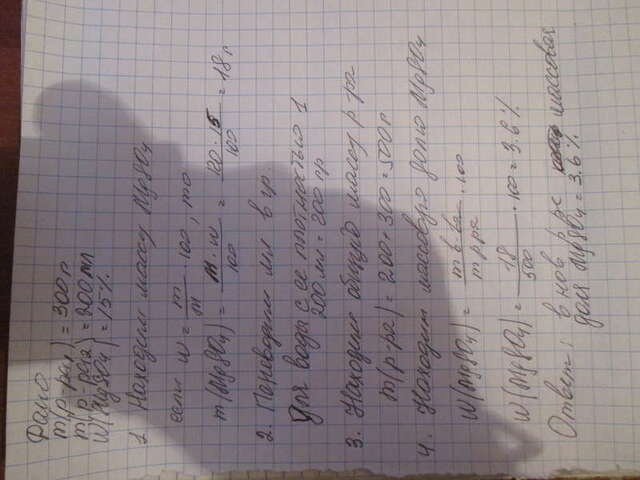 Дано
m(р-ра1) = 300 г
m(р-ра2) = 200 мл
W(MgSO4) = 15%
1. Находим массу MgSO4
если W = m/m · 100, то
m(MgSO4) = m · w / 100 = 120 · 15 / 100 = 18 г
2. Переводим мл в гр.
Для воды с ее плотностью 1
200 мл = 200 гр
3. Находим общую массу р-ра
m(р-ра) = 200 + 300 = 500 г
4. Находим массовую долю MgSO4
W(MgSO4) = m в-ва / m р-ра · 100
W(MgSO4) = 18 / 500 · 100 = 3.6%
Ответ: в нов р-ре массовая
доля MgSO4 = 3.6%